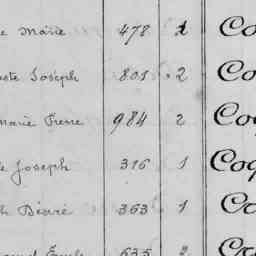 Marie 478 1 Co
Joseph 801 2 Co
Marie Pierre 984 2 Coq
Joseph 316 1 Coq
Désiré 363 1 Co
Emile 635 2